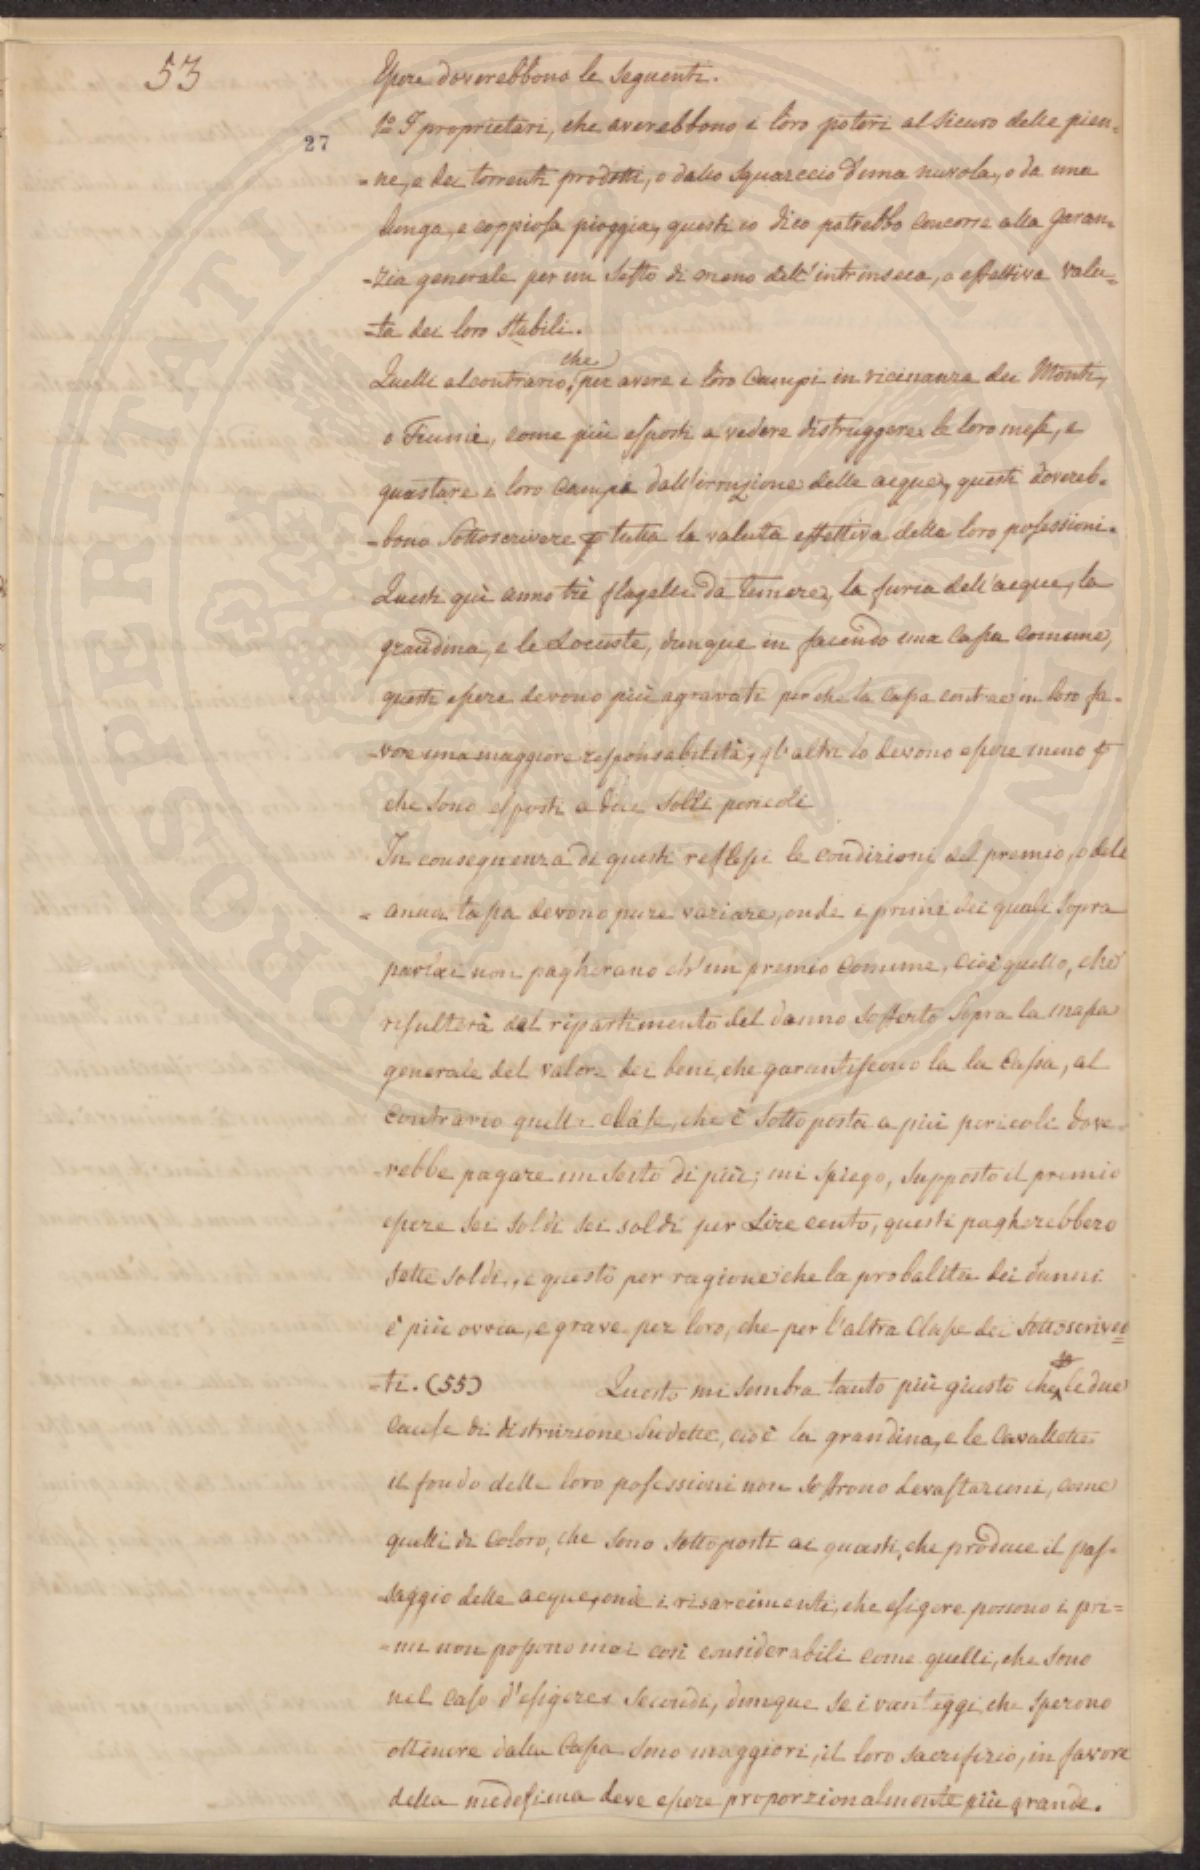 53
27
Essere doverebbono le seguenti.
1.o I proprietari, che averebbono i loro poteri al sicuro delle pien=
=ne, e dei torrenti prodotti, o dallo squarccio d'una nuvola, o da una
lunga, e coppiosa pioggia, questi io dico potrebbo concorre alla garan=
=zia generale per un sesto di meno dell'intrinseca, o effettiva valu=
=ta dei loro stabili.
Quelli al contrario, che per avere i loro Campi in vicinanza dei Monti,
o Fiumi, come più esposti a vedere distruggere le loro messe, e
guastare i loro campi dall'irruzione delle acque, questi dovereb=
=bono sottoscrivere p tutta la valuta effettiva delle loro possessioni.
Questi quì anno trè flagelli da temere, la furia dell'acque, la
grandina, e le Locuste, dunque in facendo una Cassa comune,
questi essere devono più agravati perche la cassa contrae in loro fa=
=vore una maggiore responsabilità, gl'altri lo devono essere meno p
che sono esposti a due solli pericoli
In conseguenza di questi reflessi le condizioni del premio, o dele
= anua tassa devono pure variare, onde i primi dei quali sopra
parlai non pagherano ch'un premio comune, cioè quello, che
risulterà dal ripartimento del danno sofferto sopra la massa
generale del valore dei beni, che garantiscono la la Cassa, al
contrario quella classe, che è sottoposta a più pericoli dove=
=rebbe pagare un sesto di più; mi spiego, supposto il premio
essere sei soldi sei soldi per Lire cento, questi pagherebbero
sette soldi, e questo per ragione che la probalita dei danni
è più ovvia, e grave per loro, che per l'altra Classe dei sottoscriven
=ti. (55) Questo mi sembra tanto più giusto che le due
cause di distruzione sudette, cioè la grandina, e le Cavallette
il fondo delle loro possessioni non soffrono devastazioni, come
quelli di coloro, che sono sottoposti ai guasti, che produce il pas=
=saggio delle acque, onde i risarcimenti, che esigere possono i pri=
=mi non possono mai così considerabili come quelli, che sono
nel caso d'esigere i secondi, dunque se i vanteggi, che sperono
ottenere dalla Cassa sono maggiori, il loro sacrifizio, in favore
della medesima deve essere proporzionalmente più grande.
PROSPERITATI PUBLICAE AUGENDAE